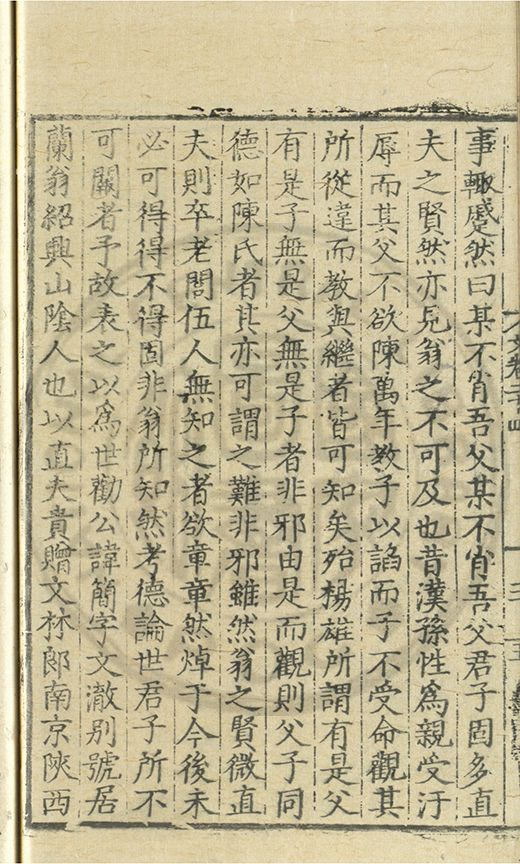 事輙蹙然曰某不肖吾父某不肖吾父君子固多直
夫之賢然亦見翁之不可及也昔漢孫性為親受汙
辱而其父不欲陳萬年教子以謟而子不受命觀其
所從違而教與繼者皆可知矣殆楊雄所謂有是父
有是子無是父無是子者非邪由是而觀則父子同
德如陳氏者其亦可謂之難非邪雖然翁之賢微直
夫則卒老閭伍人無知之者欲章章然焯于今後未
必可得得不得固非翁所知然考德論世君子所不
可闕者予故表之以為世勸公諱簡字文澈别號居
蘭翁紹興山陰人也以直夫貴贈文林郎南京陝西